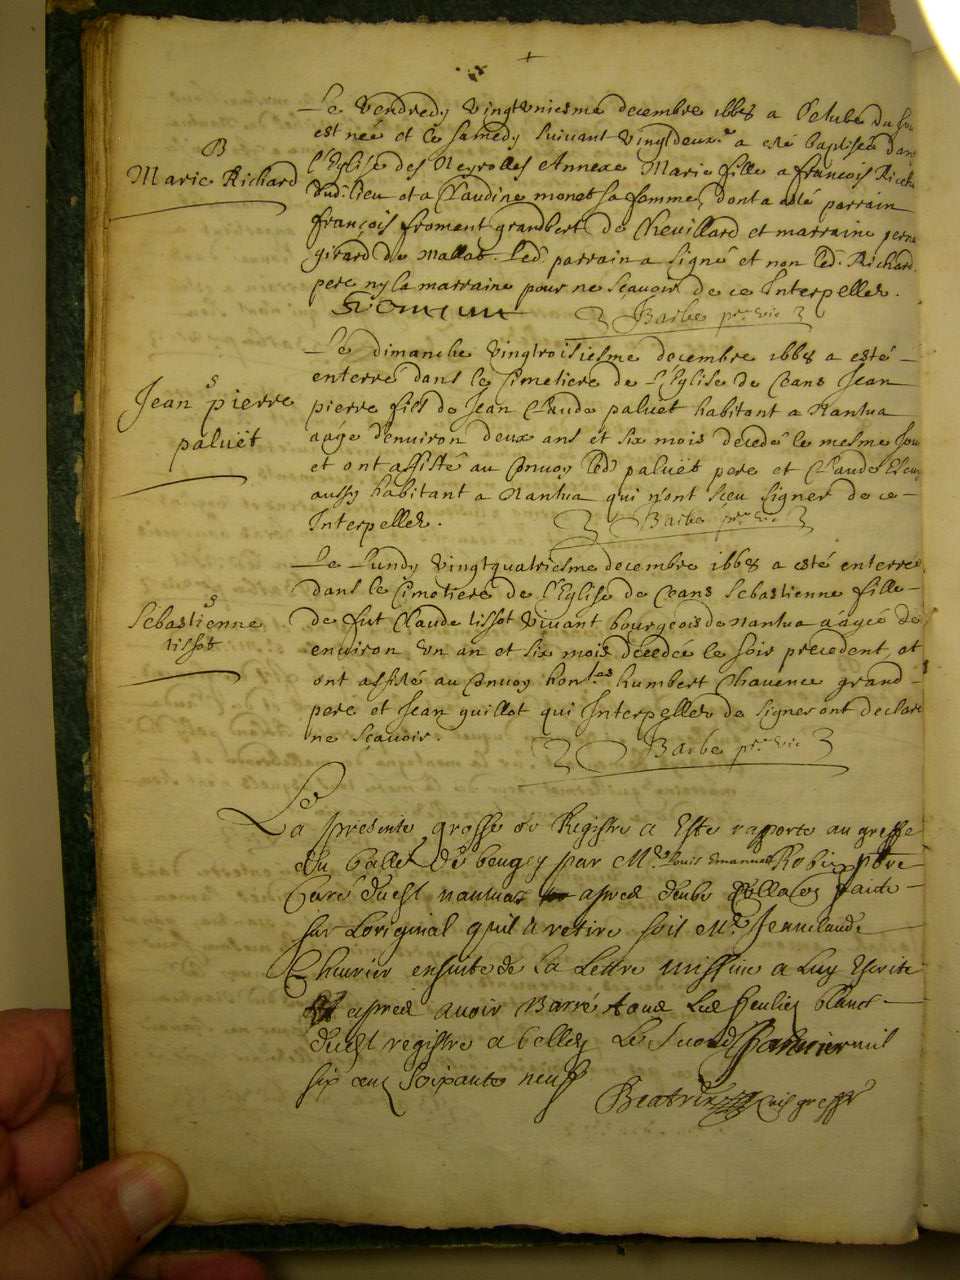 B
Marie Richard
Le Vendredy vingtuniesme decembre 1668 a l'Aube du Jou
est neé et le samedy suivant vingtdeuxe a esté baptiseé dans
l'Eglise des Neyrolles Annexe Marie fille a françois Richa
dud. lieu et a Claudine monet sa femme, dont a esté parrain
françois froment grandbert de Chevillard et marraine perne
girard de Mallat. Led. parrain a signé et non led. Richard
pere ny la marraine pour ne sçavoir de ce Interpellez.
Froment Barbe pre vic
S
Jean pierre
paluët
Le dimanche vingtroisiesme decembre 1668 a esté
enterré dans le Cimetiere de l'Eglise de Ceans Jean
pierre fils de Jean Claude paluët habitant a Nantua
aagé d'environ deux ans et six mois decedé le mesme Jou
et ont assisté au Convoy led. paluët pere et Claude
aussy habitant a Nantua qui n'ont sceu signer de ce
Interpellez. Barbe pre vic
S
Sebastienne
tissot
Le Lundy vingtquatriesme decembre 1668 a esté enterreé
dans le Cimetiere de l'Eglise de Ceans Sebastienne fille
de fut Claude tissot vivant bourgeois de nantua aageé de
environ un an et six mois decedeé le soir precedent, et
ont assisté au Convoy honles humbert Chavence grand
pere et Jean guillot qui Interpellez de signer ont declaré
ne sçavoir. Barbe pre vic
La presente grosse de Registre a Este rapporte au greffe
du balle de beugey par Mre Louis Emanuel Robin pbre
Curé dudt nantua apres deube Collaõn faicte
sur Loriginal quil a retire soit Me Jean claude
ensuitte de La Lettre missive a luy Escrite
Et apres avoir Barré tous Les feulliez blanc
dudt registre a belley Le Second Janvier mil
six cens soixante neuf
greffr